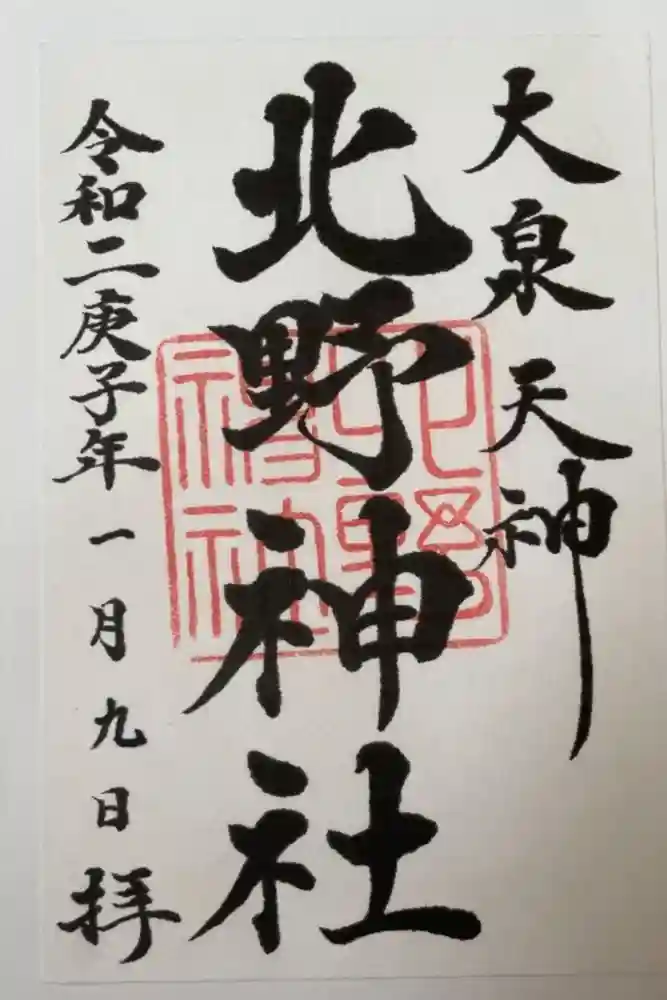 大泉天神
北野神社
令和二庚子年一月九日拝